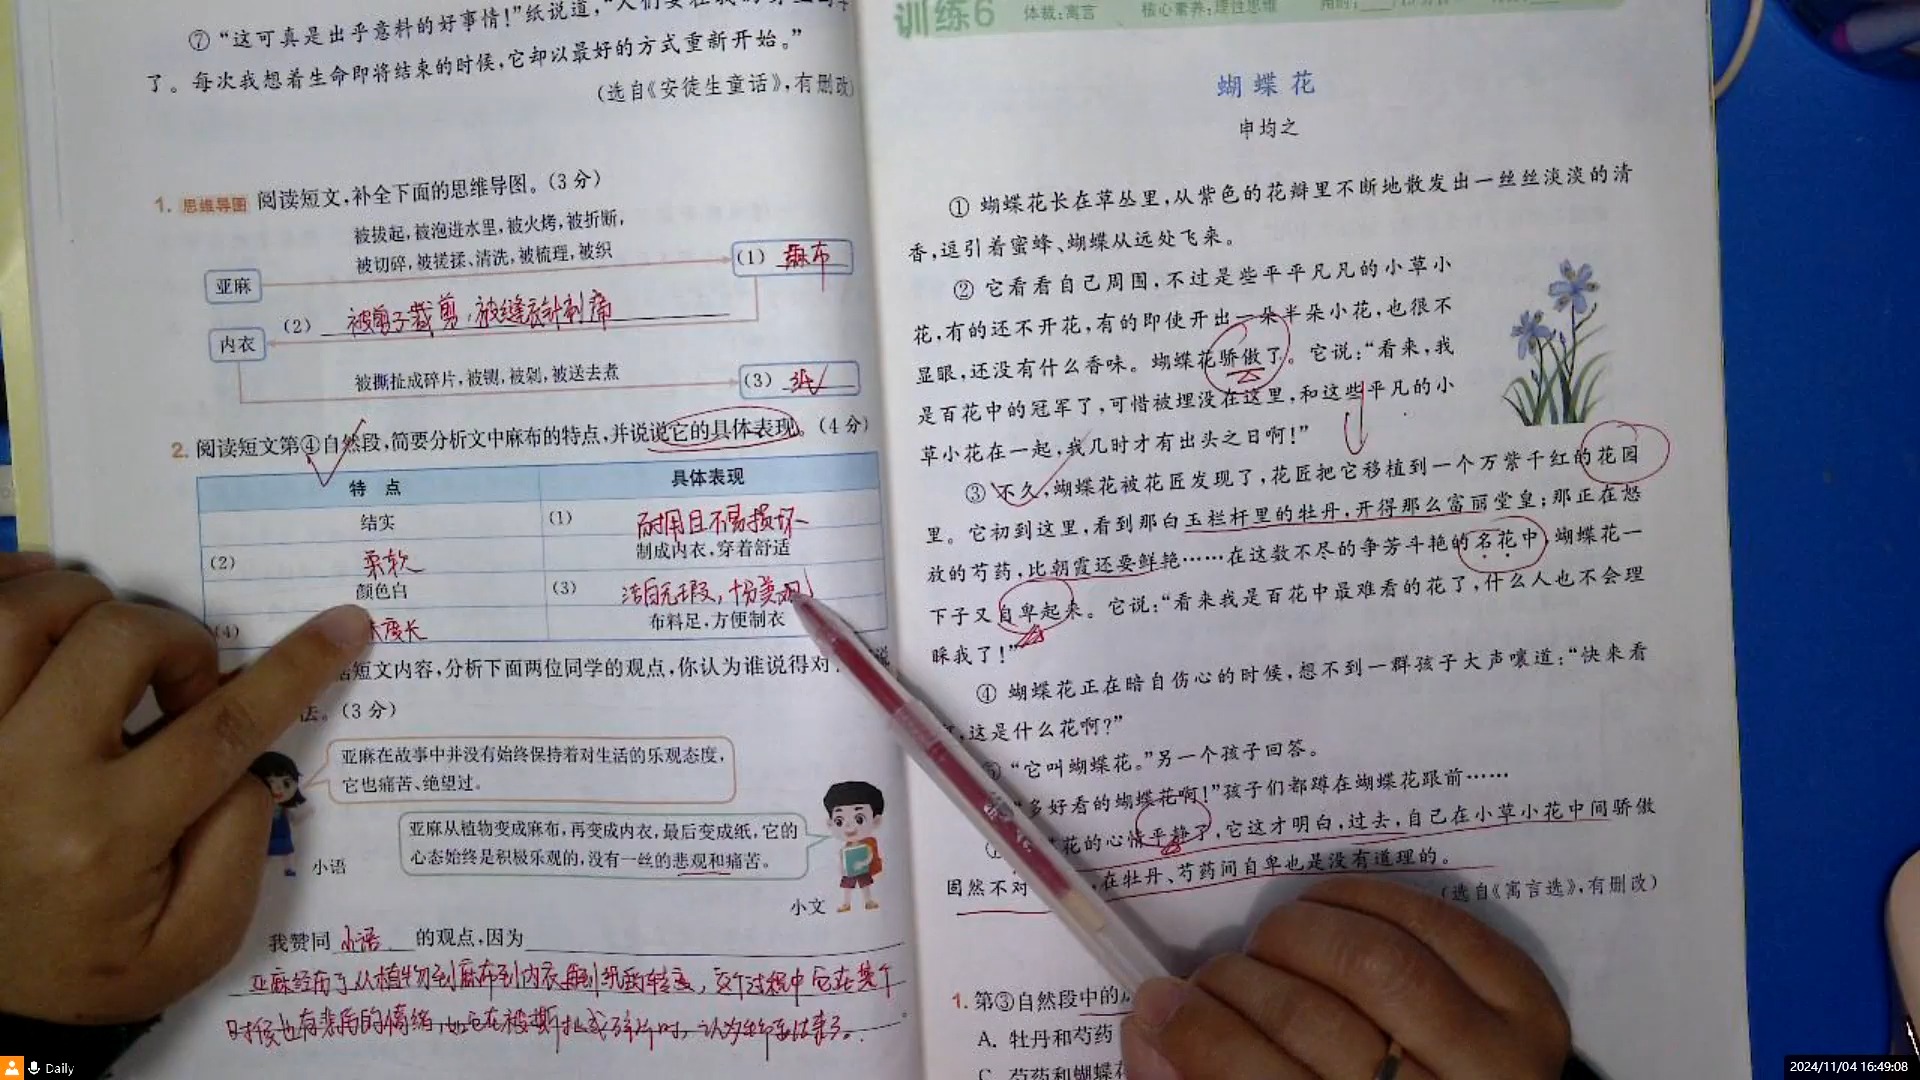 ⑦“这可真是出乎意料的好事情!”纸说道,
了。每次我想着生命即将结束的时候,它却以最好的方式重新开始。”
(选自《安徒生童话》,有删改)
1. 思维导图 阅读短文,补全下面的思维导图。(3分)
被拔起,被泡进水里,被火烤,被折断,
被切碎,被搓揉、清洗,被梳理,被织
亚麻
(1) 麻布
(2) 被剪子裁剪,被缝衣针刺痛
内衣
被撕扯成碎片,被铡,被剁,被送去煮
(3) 纸
2. 阅读短文第④自然段,简要分析文中麻布的特点,并说说它的具体表现。(4分)
特 点 具体表现
结实 (1) 耐用且不易损坏
(2) 柔软 制成内衣,穿着舒适
颜色白 (3) 洁白无瑕,十分美观
(4) 度长 布料足,方便制衣
短文内容,分析下面两位同学的观点,你认为谁说得对
法。(3分)
亚麻在故事中并没有始终保持着对生活的乐观态度,
它也痛苦、绝望过。
小语
亚麻从植物变成麻布,再变成内衣,最后变成纸,它的
心态始终是积极乐观的,没有一丝的悲观和痛苦。
小文
我赞同 小语 的观点,因为
亚麻经历了从植物到麻布到内衣再到纸的转变,这个过程中它在某个
时候也有悲痛的情绪,如它在被撕扯成碎片时,认为生命要结束了。
训练6 体裁:寓言 核心素养:理性思维
蝴蝶花
申均之
① 蝴蝶花长在草丛里,从紫色的花瓣里不断地散发出一丝丝淡淡的清
香,逗引着蜜蜂、蝴蝶从远处飞来。
② 它看看自己周围,不过是些平平凡凡的小草小
花,有的还不开花,有的即使开出一朵半朵小花,也很不
显眼,还没有什么香味。蝴蝶花骄傲了。它说:“看来,我
是百花中的冠军了,可惜被埋没在这里,和这些平凡的小
草小花在一起,我几时才有出头之日啊!”
③ 不久,蝴蝶花被花匠发现了,花匠把它移植到一个万紫千红的花园
里。它初到这里,看到那白玉栏杆里的牡丹,开得那么富丽堂皇;那正在怒
放的芍药,比朝霞还要鲜艳……在这数不尽的争芳斗艳的名花中,蝴蝶花一
下子又自卑起来。它说:“看来我是百花中最难看的花了,什么人也不会理
睬我了!”
④ 蝴蝶花正在暗自伤心的时候,想不到一群孩子大声嚷道:“快来看
,这是什么花啊?”
“它叫蝴蝶花。”另一个孩子回答。
“多好看的蝴蝶花啊!”孩子们都蹲在蝴蝶花跟前……
花的心情平静了,它这才明白,过去,自己在小草小花中间骄傲
固然不对 在牡丹、芍药间自卑也是没有道理的。
(选自《寓言选》,有删改)
1. 第③自然段中的
A. 牡丹和芍药
C. 芍药和蝴蝶花
Daily
2024/11/04 16:49:08